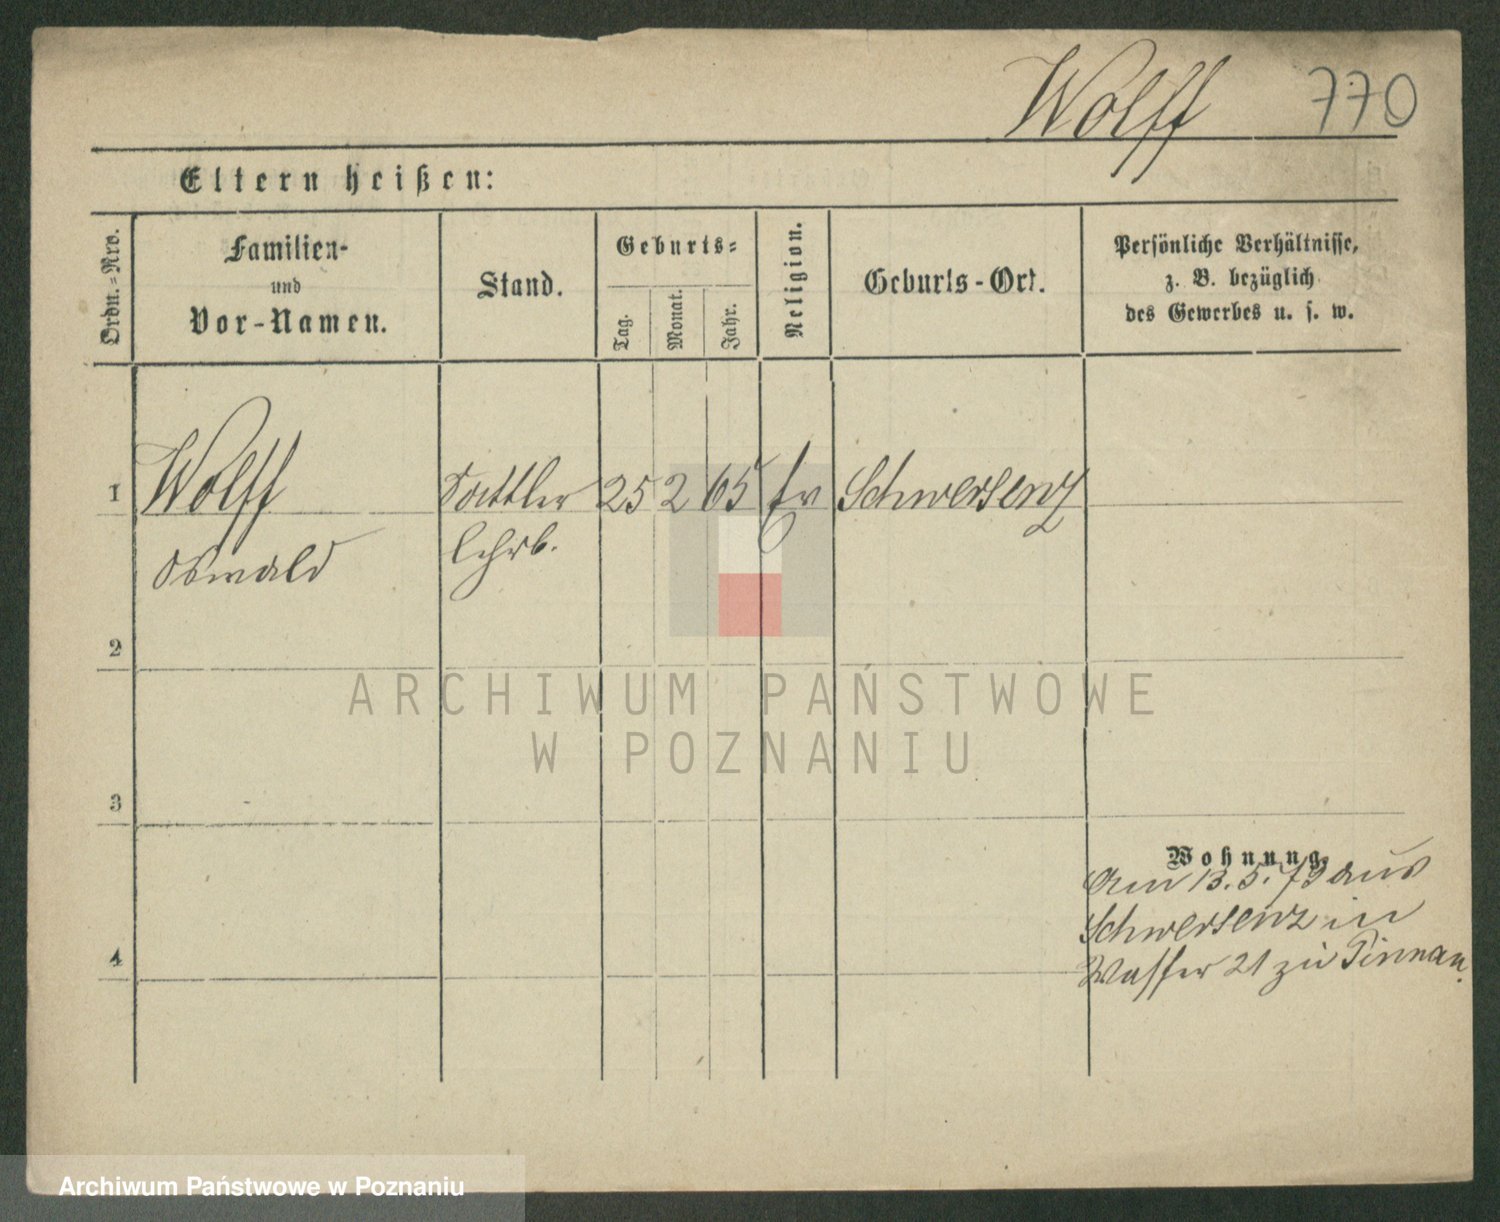 Wolff 770
Eltern heißen:
Ordn.-Nro.
Familien-
und
Vor-Namen.
Stand.
Geburts-
Tag.
Monat.
Jahr.
Religion.
Geburts-Ort.
Persönliche Verhältnisse,
z. B. bezüglich
des Gewerbes u. s. w.
1 Wolff Sattler 25 2 65 Ev Schwersenz
Oswald Lehrb.
2
ARCHIWUM PAŃSTWOWE
W POZNANIU
3
Wohnung.
Am 13.5.79 aus
Schwersenz in
4 Wasser 21 zu
Archiwum Państwowe w Poznaniu